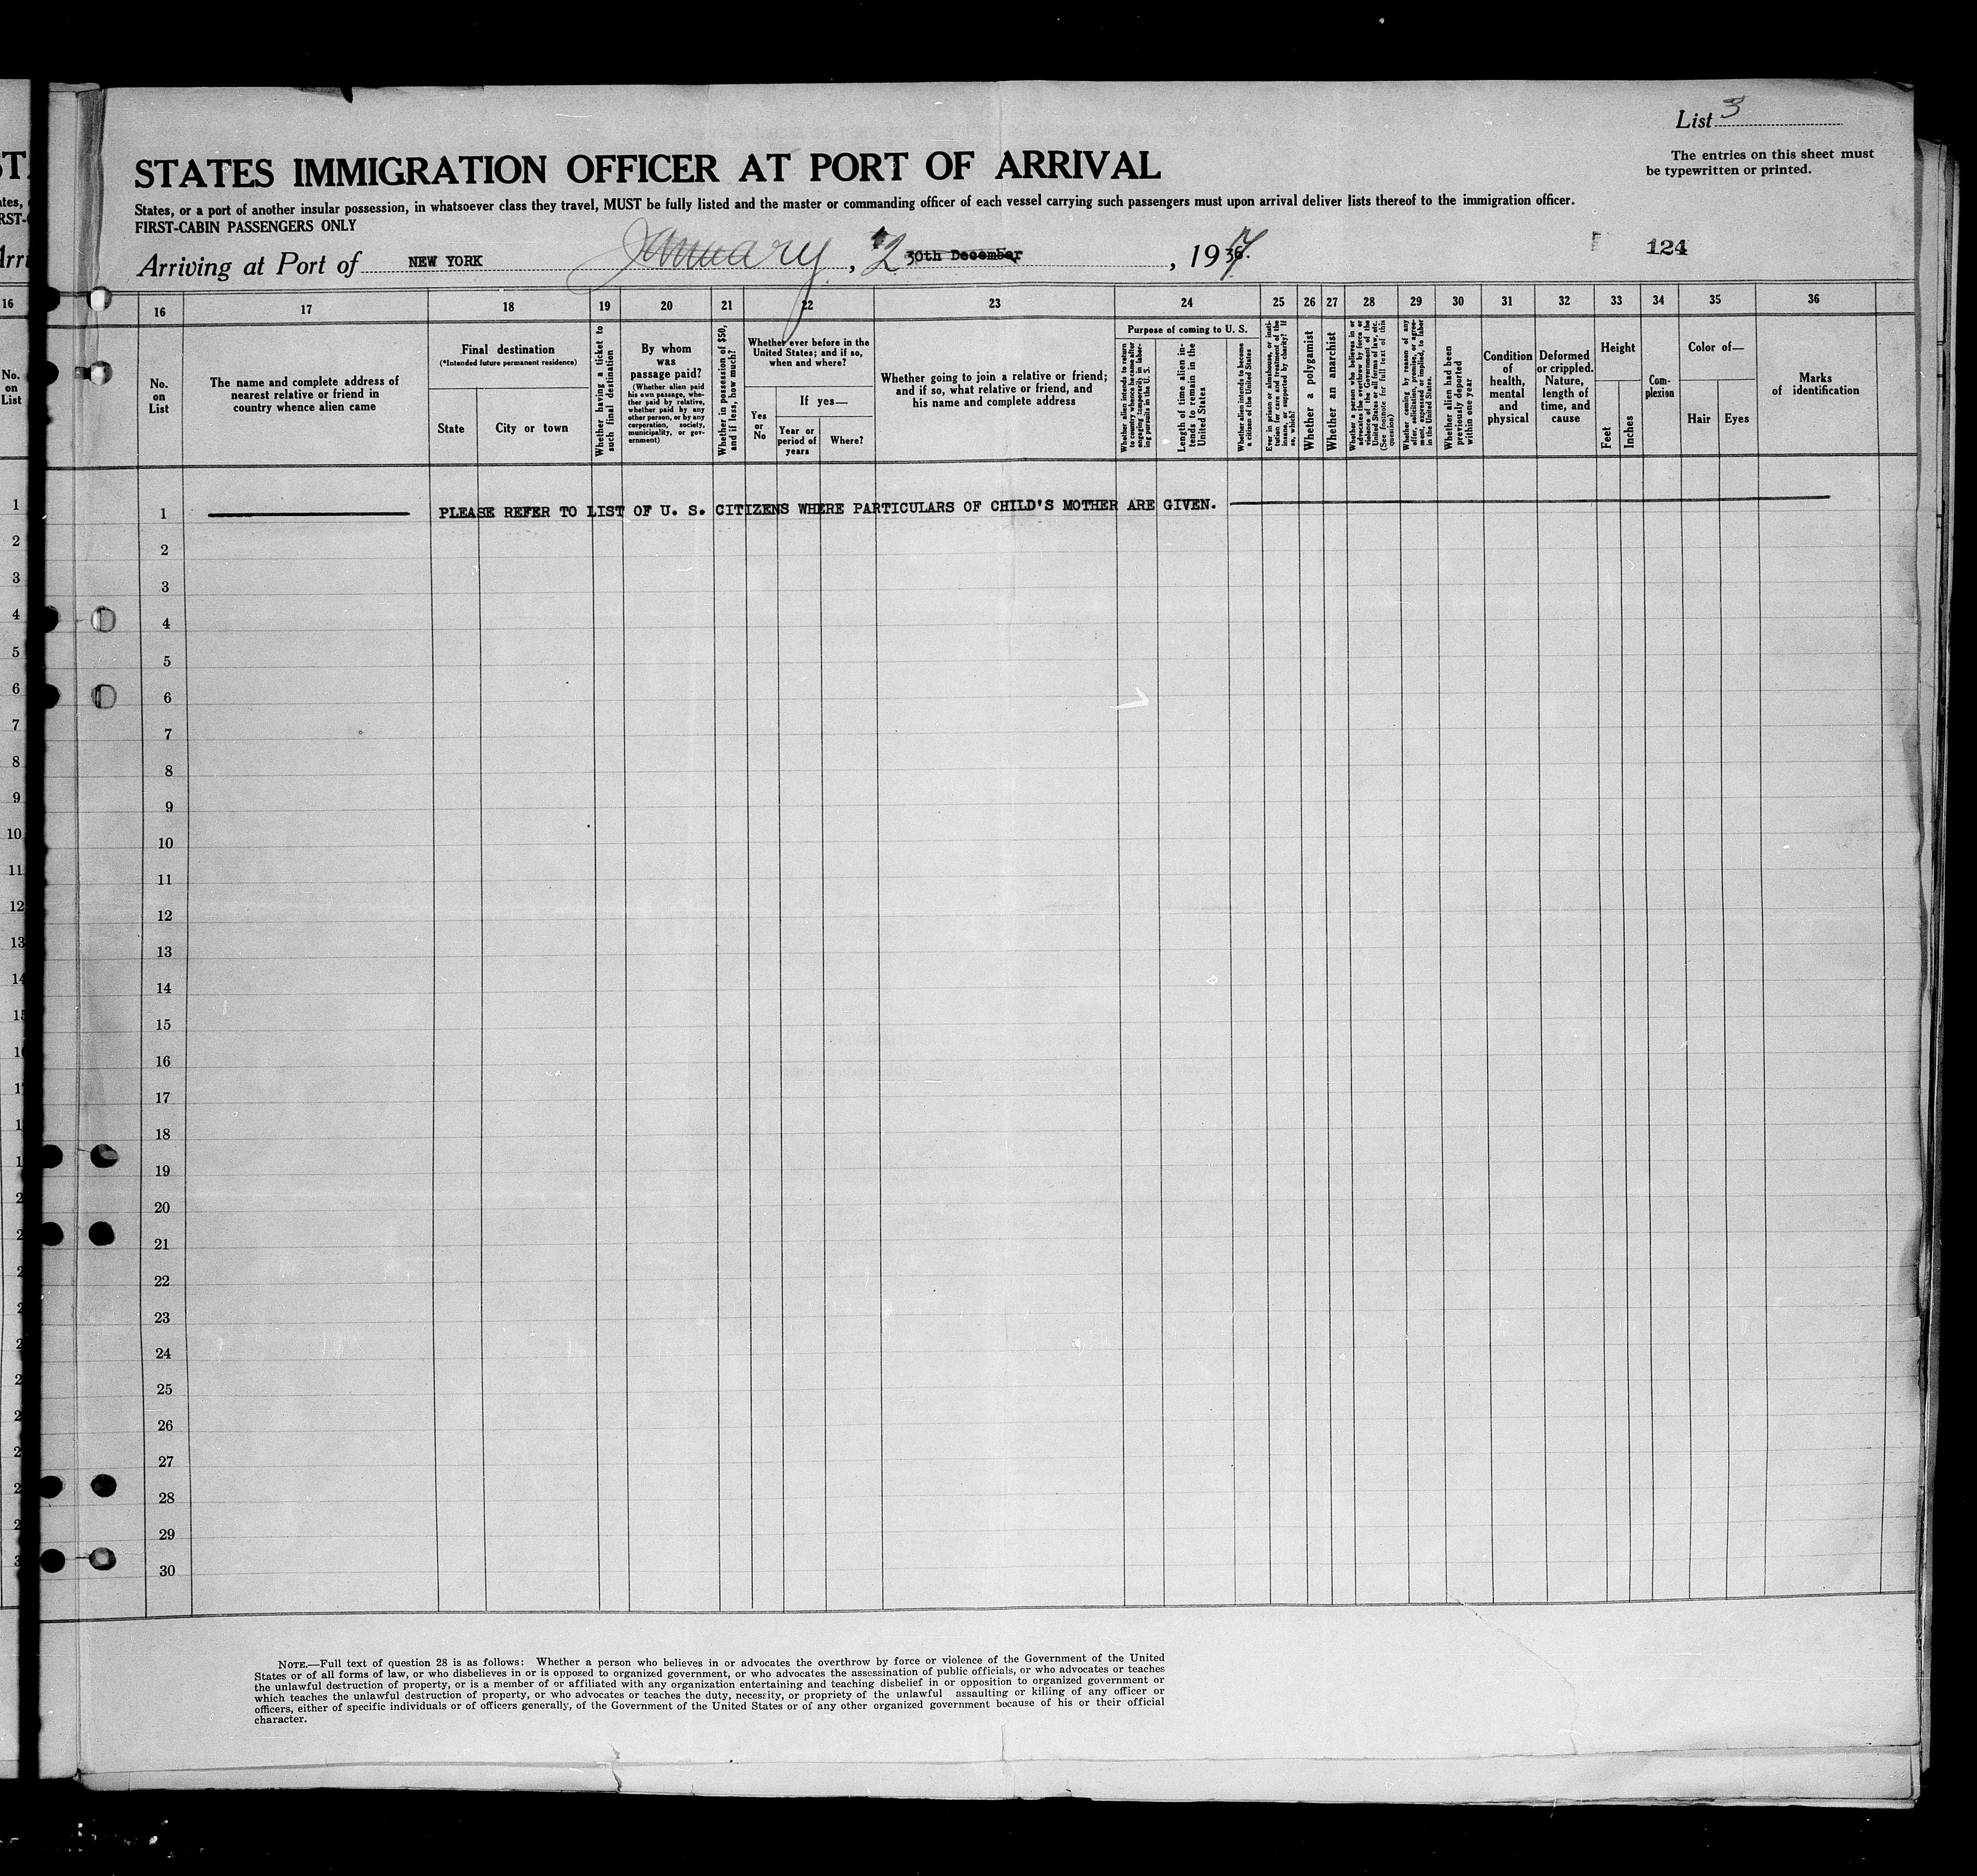 List 3
The entries on this sheet must
be typewritten or printed.
STATES IMMIGRATION OFFICER AT PORT OF ARRIVAL
States, or a port of another insular possession, in whatsoever class they travel, MUST be fully listed and the master or commanding officer of each vessel carrying such passengers must upon arrival deliver lists thereof to the immigration officer.
FIRST-CABIN PASSENGERS ONLY
Arriving at Port of NEW YORK January, 2 30th December, 1937
124
16 17 18 19 20 21 22 23 24 25 26 27 28 29 30 31 32 33 34 35 36
No.
on
List
The name and complete address of
nearest relative or friend in
country whence alien came
Final destination
(*Intended future permanent residence)
State
City or town
Whether having a ticket to
such final destination
By whom
was
passage paid?
(Whether alien paid
his own passage, whe-
ther paid by relative,
whether paid by any
other person, or by any
corporation, society,
municipality, or gov-
ernment)
Whether in possession of $50,
and if less, how much?
Whether ever before in the
United States; and if so,
when and where?
Yes
or
No
If yes—
Year or
period of
years
Where?
Whether going to join a relative or friend;
and if so, what relative or friend, and
his name and complete address
Purpose of coming to U. S.
Whether alien intends to return
to country whence he came after
engaging temporarily in labor-
ing pursuits in the U. S.
Length of time alien in-
tends to remain in the
United States
Whether alien intends to become
a citizen of the United States
Ever in prison or almshouse, or insti-
tution for care and treatment of the
insane, or supported by charity? If
so, which?
Whether a polygamist
Whether an anarchist
Whether a person who believes in or
advocates the overthrow by force or
violence of the Government of the
United States or all forms of law, etc.
(See footnote for full text of this
question)
Whether coming by reason of any
offer, solicitation, promise, or agree-
ment, expressed or implied, to labor
in the United States.
Whether alien had been
previously deported
within one year
Condition
of
health,
mental
and
physical
Deformed
or crippled.
Nature,
length of
time, and
cause
Height
Feet
Inches
Com-
plexion
Color of—
Hair
Eyes
Marks
of identification
1 PLEASE REFER TO LIST OF U. S. CITIZENS WHERE PARTICULARS OF CHILD'S MOTHER ARE GIVEN.
2
3
4
5
6
7
8
9
10
11
12
13
14
15
16
17
18
19
20
21
22
23
24
25
26
27
28
29
30
NOTE.—Full text of question 28 is as follows: Whether a person who believes in or advocates the overthrow by force or violence of the Government of the United
States or of all forms of law, or who disbelieves in or is opposed to organized government, or who advocates the assassination of public officials, or who advocates or teaches
the unlawful destruction of property, or is a member of or affiliated with any organization entertaining and teaching disbelief in or opposition to organized government or
which teaches the unlawful destruction of property, or who advocates or teaches the duty, necessity, or propriety of the unlawful assaulting or killing of any officer or
officers, either of specific individuals or of officers generally, of the Government of the United States or of any other organized government because of his or their official
character.